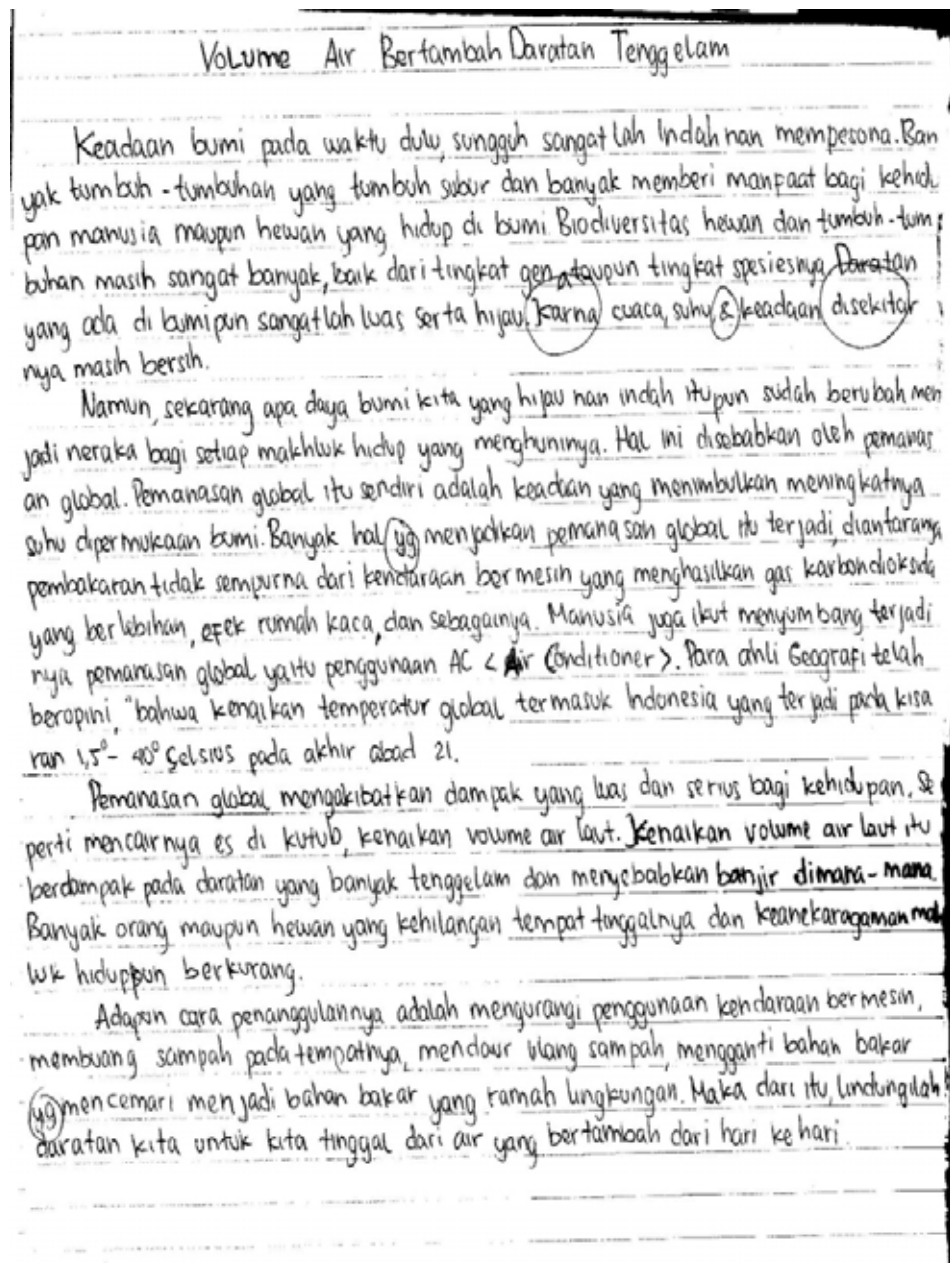 Volume Air Bertambah Daratan Tenggelam
Keadaan bumi pada waktu dulu, sungguh sangat lah Indah nan mempesona. Ban
yak tumbuh - tumbuhan yang tumbuh subur dan banyak memberi manfaat bagi kehidu
pan manusia maupun hewan yang hidup di bumi. Biodiversitas hewan dan tumbuh - tum
buhan masih sangat banyak, baik dari tingkat gen ataupun tingkat spesiesnya. Daratan
yang ada di bumipun sangatlah luas serta hijau. Karna cuaca, suhu & keadaan disekitar
nya masih bersih.
Namun, sekarang apa daya bumi kita yang hijau nan indah itupun sudah berubah men
jadi neraka bagi setiap makhluk hidup yang menghuninya. Hal ini disebabkan oleh pemanas
an global. Pemanasan global itu sendiri adalah keadaan yang menimbulkan meningkatnya
suhu dipermukaan bumi. Banyak hal yg menjadikan pemanasan global itu terjadi, diantaranya
pembakaran tidak sempurna dari kendaraan bermesin yang menghasilkan gas karbondioksida
yang berlebihan, efek rumah kaca, dan sebagainya. Manusia juga ikut menyumbang terjadi
nya pemanasan global yaitu penggunaan AC < Air Conditioner >. Para ahli Geografi telah
beropini, "bahwa kenaikan temperatur global termasuk Indonesia yang terjadi pada kisa
ran 1,5° - 40° Celsius pada akhir abad 21.
Pemanasan global mengakibatkan dampak yang luas dan serius bagi kehidupan, Se
perti mencairnya es di kutub, kenaikan volume air laut. Kenaikan volume air laut itu
berdampak pada daratan yang banyak tenggelam dan menyebabkan banjir dimana - mana.
Banyak orang maupun hewan yang kehilangan tempat tinggalnya dan keanekaragaman mah
luk hiduppun berkurang.
Adapun cara penanggulannya adalah mengurangi penggunaan kendaraan bermesin,
membuang sampah pada tempatnya, mendaur ulang sampah, mengganti bahan bakar
yg mencemari menjadi bahan bakar yang ramah lingkungan. Maka dari itu, lindungilah
daratan kita untuk kita tinggal dari air yang bertambah dari hari ke hari.